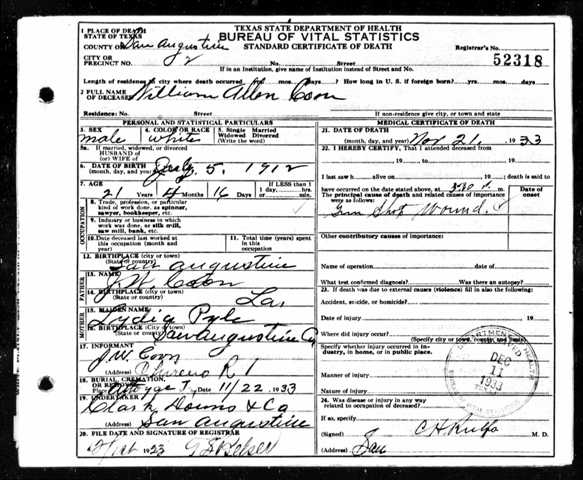 TEXAS STATE DEPARTMENT OF HEALTH
BUREAU OF VITAL STATISTICS
STANDARD CERTIFICATE OF DEATH
1 PLACE OF DEATH
STATE OF TEXAS
COUNTY OF San Augustine
CITY OR
PRECINCT NO.
Registrar's No.
52318
No. Street
If in an Institution, give name of Institution instead of Street and No.
Length of residence in city where death occurred yrs. mos. days? How long in U. S. if foreign born? yrs. mos. days
2 FULL NAME
OF DECEASED William Allen Coon
Residence: No. Street If non-residence give city, or town and state
PERSONAL AND STATISTICAL PARTICULARS
3. SEX 4. COLOR OR RACE 5. Single Married Widowed Divorced (Write the word)
male white
5a. If married, widowed, or divorced
HUSBAND of
(or) WIFE of
6. DATE OF BIRTH
(month, day, and year) July 5, 1912
7. AGE 21 Years 4 Months 16 Days If LESS than 1 day, hrs. or min.
OCCUPATION
8. Trade, profession, or particular
kind of work done, as spinner,
sawyer, bookkeeper, etc.
9. Industry or business in which
work was done, as silk mill,
saw mill, bank, etc.
10. Date deceased last worked at
this occupation (month and
year)
11. Total time (years) spent in this occupation
12. BIRTHPLACE (city or town)
(State or country) San Augustine
FATHER
13. NAME J. W. Coon
14. BIRTHPLACE (city or town)
(State or country) La
MOTHER
15. MAIDEN NAME Lydia Pyle
16. BIRTHPLACE (city or town)
(State or country) San Augustine Co
17. INFORMANT J. W. Coon
(Address) Chireno R 1
18. BURIAL, CREMATION,
OR REMOVAL
Date 11/22 1933
19. UNDERTAKER Clark Downs & Co
(Address) San Augustine
20. FILE DATE AND SIGNATURE OF REGISTRAR
MEDICAL CERTIFICATE OF DEATH
21. DATE OF DEATH
(month, day, and year) Nov 21, 1933
22. I HEREBY CERTIFY, That I attended deceased from
, 19 , to , 19
I last saw h alive on , 19 , death is said to
have occurred on the date stated above, at 3:30 P. m.
The principal cause of death and related causes of importance
were as follows: Date of onset
Gun Shot Wound.
Other contributory causes of importance:
Name of operation date of
What test confirmed diagnosis? Was there an autopsy?
23. If death was due to external causes (violence) fill in also the following:
Accident, suicide, or homicide?
Date of injury , 19
Where did injury occur?
(Specify city or town, county, and state)
Specify whether injury occurred in industry, in home, or in public place.
Manner of injury
Nature of injury
24. Was disease or injury in any way
related to occupation of deceased?
If so, specify
(Signed) M. D.
(Address) San
DEC
11
1933